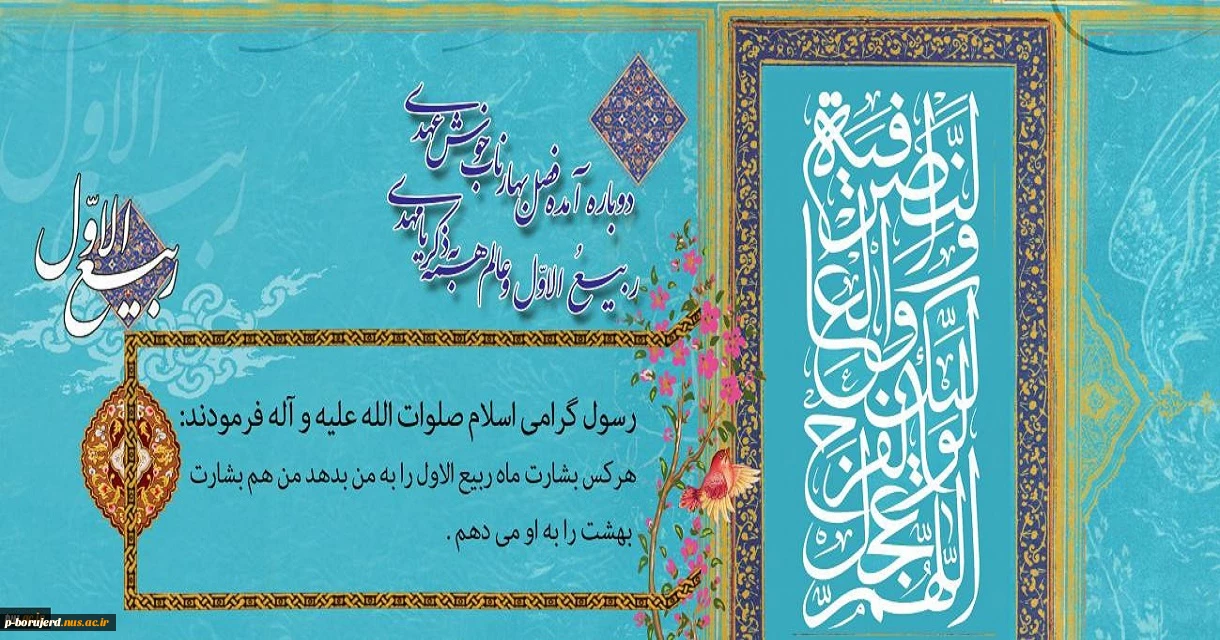 دوباره آمده فصل بهار ناب خوش عهدی
ربیعُ الاوّل و عالم همه به ذکر یا مهدی
ربیع الاوّل
ربیع الاوّل
رسول گرامی اسلام صلوات الله علیه و آله فرمودند:
هرکس بشارت ماه ربیع الاول را به من بدهد من هم بشارت
بهشت را به او می دهم .
اللّهُمَّ عَجِّل لِوَلیِّکَ الفَرَجَ وَالعافیَةَ وَالنَّصر
p-borujerd.nus.ac.ir